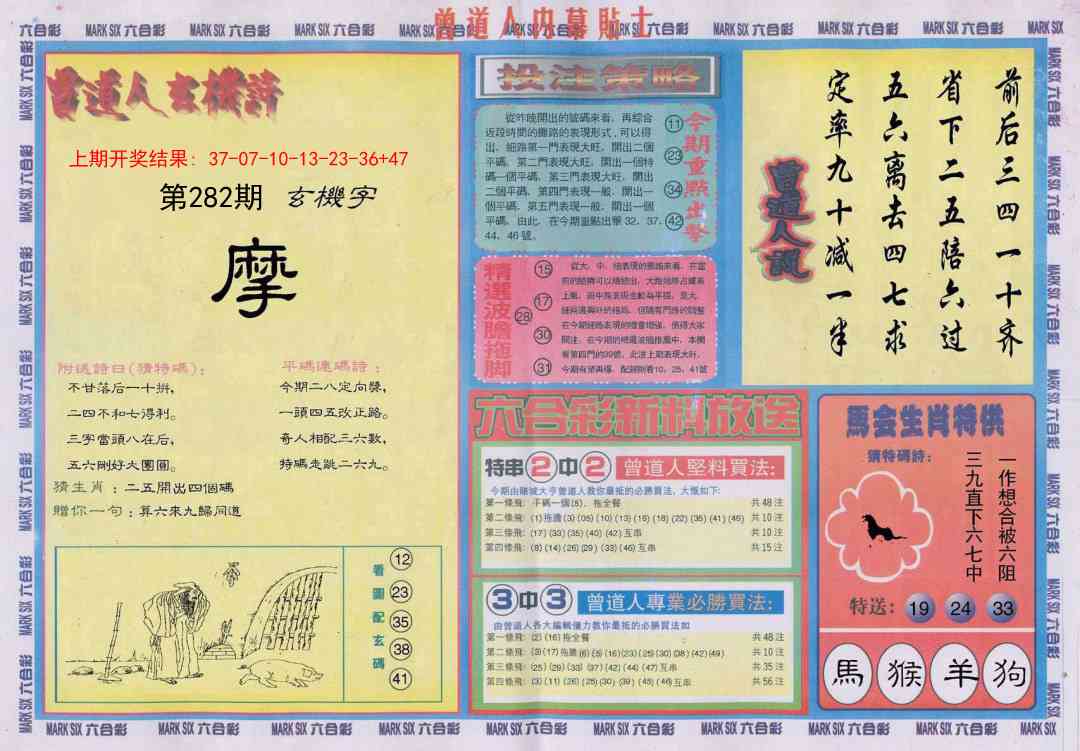 曾道人内幕貼士
六合彩 MARK SIX 六合彩 MARK SIX 六合彩 MARK SIX 六合彩 MARK SIX 六合彩
曾道人玄機詩
上期开奖结果：37-07-10-13-23-36+47
第282期 玄機字
摩
附送詩曰(猜特碼)：
不甘落后一十拼,
二四不和七得利。
三字當頭八在后,
五六剛好大團圓。
平碼連碼詩：
今期二八定向獎,
一頭四五改正路。
奇人相配三六數,
特碼走跳二六九。
猜生肖：二五開出四個碼
贈你一句：算六來九歸同道
看圖配玄碼
12
23
35
38
41
投注策略
從昨晚開出的號碼來看，再綜合
近段時間的攤路的表現形式，可以得
出，細路第一門表現大旺，開出二個
平碼。第二門表現大旺，開出一個特
碼一個平碼，第三門表現大旺，開出
二個平碼，第四門表現一般，開出一
個平碼。第五門表現一般，開出一個
平碼。由此，在今期重點出擊 32、37、
44、46 號。
11
23
34
42
今期重點出擊
精選波膽拖脚
15
17
28
30
31
曾道人説
前后三四一十齐
省下二五陪六过
五六离去四七求
定率九十减一半
六合彩新料放送
特串2中2 曾道人堅料買法:
今期由賭城大亨曾道人教你最抵的必勝買法，大慨如下:
第一條飛: 平碼一個(5)、拖全餐 共 48 注
第二條飛: (1)拖膽(3)(05)(10)(13)(16)(18)(22)(35)(41)(46) 共 10 注
第三條飛: (17)(33)(35)(40)(42)互串 共 10 注
第四條飛: (8)(14)(26)(29)(33)(46)互串 共 15 注
3中3 曾道人專業必勝買法:
由曾道人各大編輯僅力教你最抵的必勝買法如
第一條飛: (2)(16)拖全餐 共 48 注
第二條飛: (3)(17)拖膽(6)(8)(16)(23)(29)(30)(38)(42)(49) 共 10 注
第三條飛: (25)(29)(33)(37)(42)(44)(47)互串 共 35 注
第四條飛: (3)(11)(26)(25)(30)(39)(45)(46)互串 共 56 注
馬会生肖特供
猜特碼詩：
一作想合被六阻
三九直下六七中
特送：19 24 33
馬 猴 羊 狗
MARK SIX 六合彩 MARK SIX 六合彩 MARK SIX 六合彩 MARK SIX 六合彩 MARK SIX